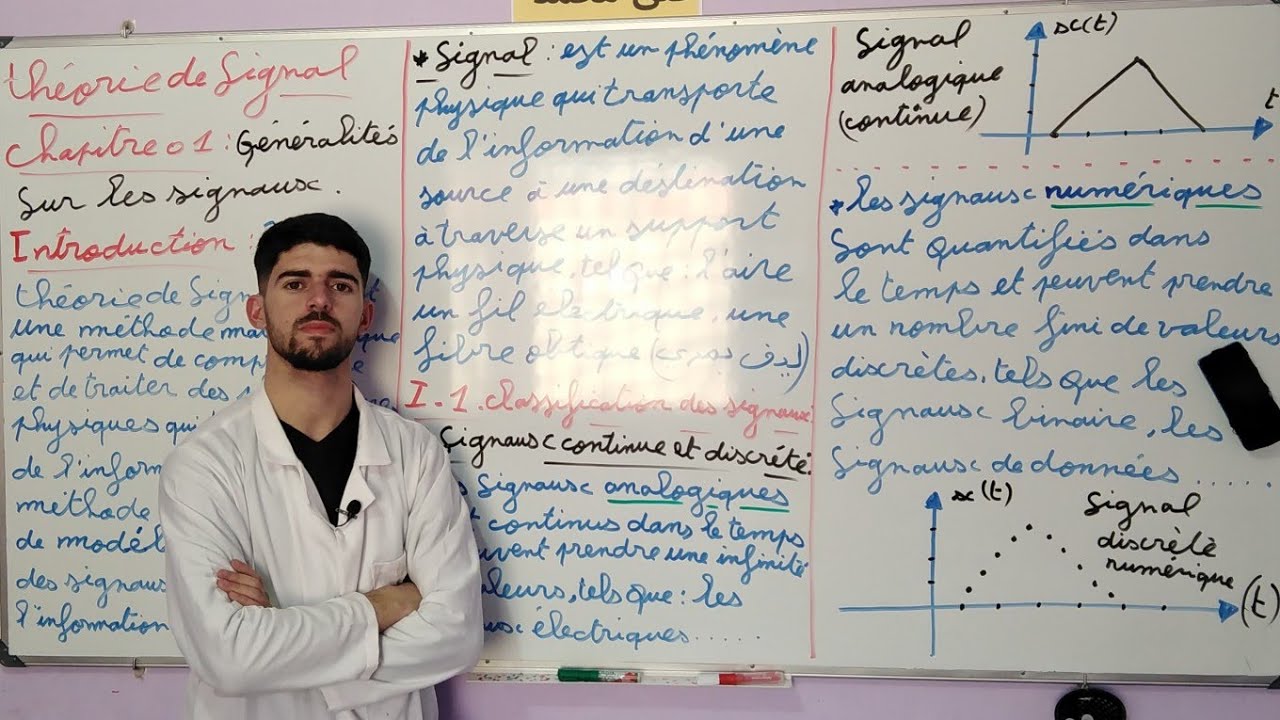 théorie de Signal
Chapitre 01 : Généralités
Sur les signaux.
Introduction :
théorie de
une méthode
qui permet de
et de traiter des
physiques
de
méthode
de
des signaux
l'information
* Signal : est un phénomène
physique qui transporte
de l'information d'une
source à une déstination
à traverse un support
physique, tel que : l'aire
un fil electrique, une
fibre obtique (
I.1. classification des signaux:
Signaux continue et discrété:
Signaux analogiques
continus dans le temps
prendre une infinité
tels que : les
électriques......
Signal
analogique
(continue)
x(t)
t
* les signaux numériques
Sont quantifiés dans
le temps et peuvent prendre
un nombre fini de valeurs
discrètes, tels que les
Signaux binaire, les
Signaux de données .....
x(t)
Signal
discrètè
numérique
(t)